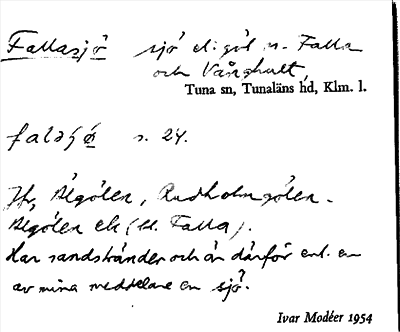 Fallasjö sjö el. göl m. Falla
och Vånghult,
Tuna sn, Tunaläns hd, Klm. l.
s. 24.
Jfr Älgölen, Rudholmgölen.
Älgölen ek (t. Falla).
Har sandstränder och är därför enl. en
av mina meddelare en sjö.
Ivar Modéer 1954